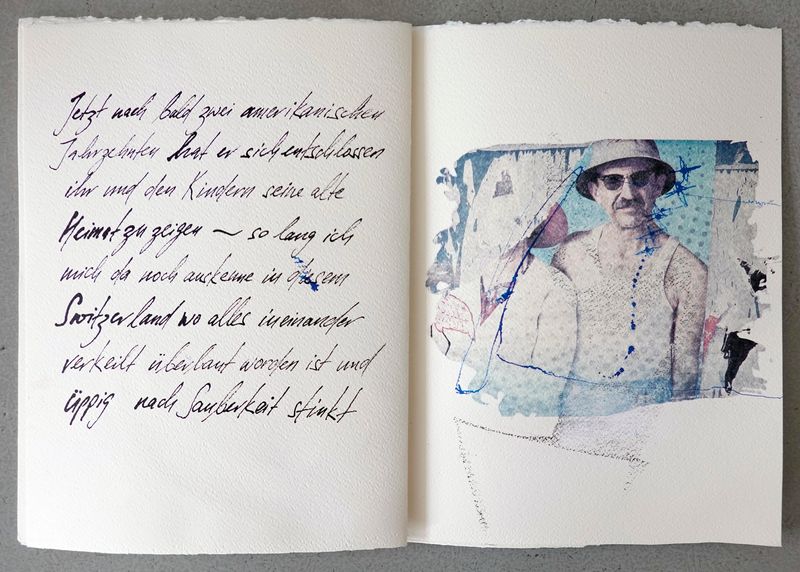 Jetzt nach bald zwei amerikanischen
Jahrzehnten hat er sich entschlossen
ihr und den Kindern seine alte
Heimat zu zeigen – so lang ich
mich da noch auskenne in diesem
Switzerland wo alles ineinander
verkeilt überlaut worden ist und
üppig nach Sauberkeit stinkt